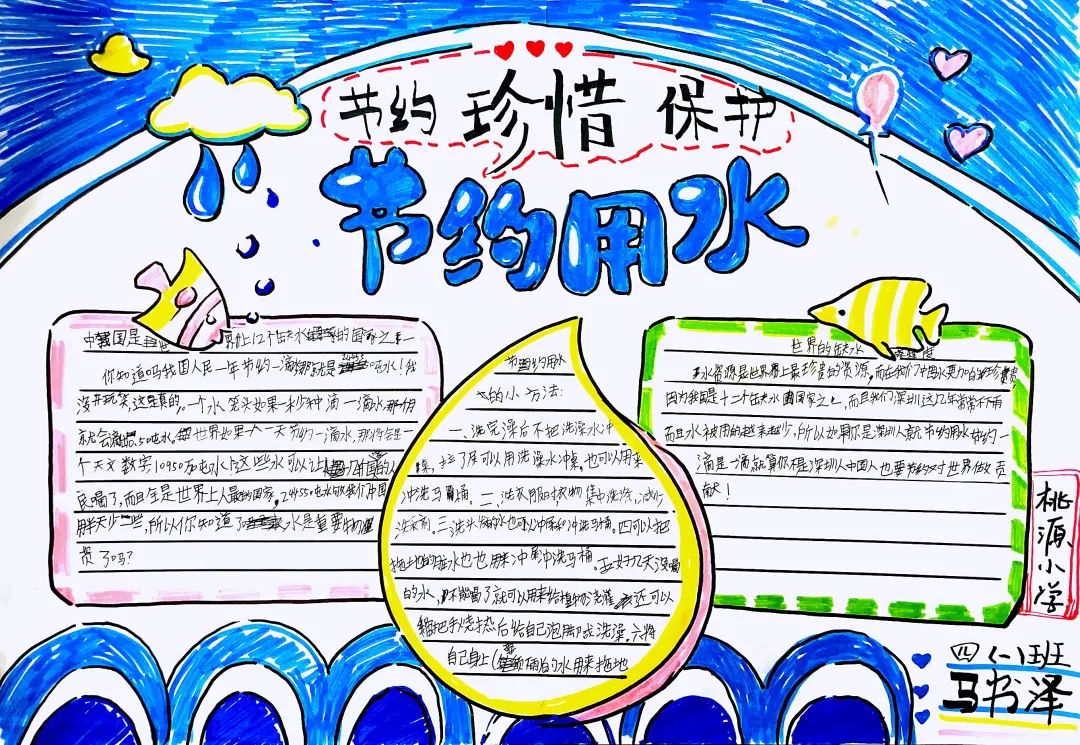 节约 珍惜 保护
节约用水
中国是 界上12个缺水 的国家之一
你知道吗我国人民一年节约一滴 就是 吨水！我
没开玩笑，这是真的。一个水笼头如果一秒钟滴一滴水那1个月
就会滴 50吨水， 世界如果 一天节约一滴水，那将会是一
个天文数字10950万吨水！这些水可以让 的人
民喝了，而且全是世界上人最 的国家，24455 吨水够我们中国
用 天 些，所以你知道了 水是重要 物
资了吗？
节约用水
的小方法：
一、洗完澡后不把洗澡水冲
掉，拉了尿可以用洗澡水冲 也可以用来
冲洗马桶。二、洗衣服 衣物集中洗涤，减少
洗 剂。三、洗头发的水也可以冲 和冲洗马桶。四可以把
拖地的 水也也用来冲 冲洗马桶。五好几天没喝
的水，不能喝了就可以用来给植物浇灌 还可以
把 烧热后给自己泡脚或洗澡。六将
自己身上 的水用来拖地
世界的缺水
水资源是世界上最珍贵的资源，而在我们中国水更加的 珍贵
因为我国是十二个缺水国家之一，而且我们深圳这几年常常不下雨
而且水被用的越来越少，所以如果你是深圳人就节约用水节约一
滴是一滴就算你不是深圳人中国人也要节约对世界做贡
献！
桃源小学
四(一)班
马书泽